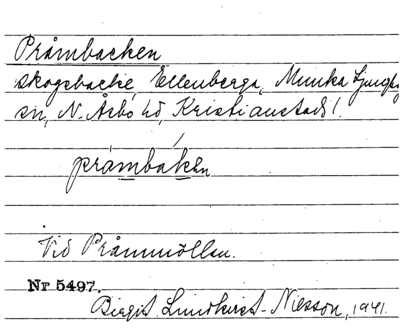 Pråmbacken
skogsbacke, Ellenberga, Munka Ljungby
sn, N. Åsbo hd, Kristianstads l.
pråmbákən
Vid Pråmmöllan.
Nr 5497.
Birgit Lundkvist-Nilsson, 1941.